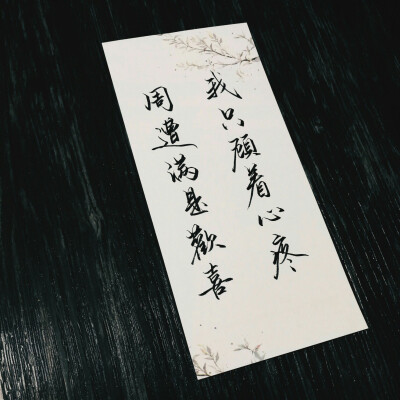 我只顾着心疼
周遭满是歡喜